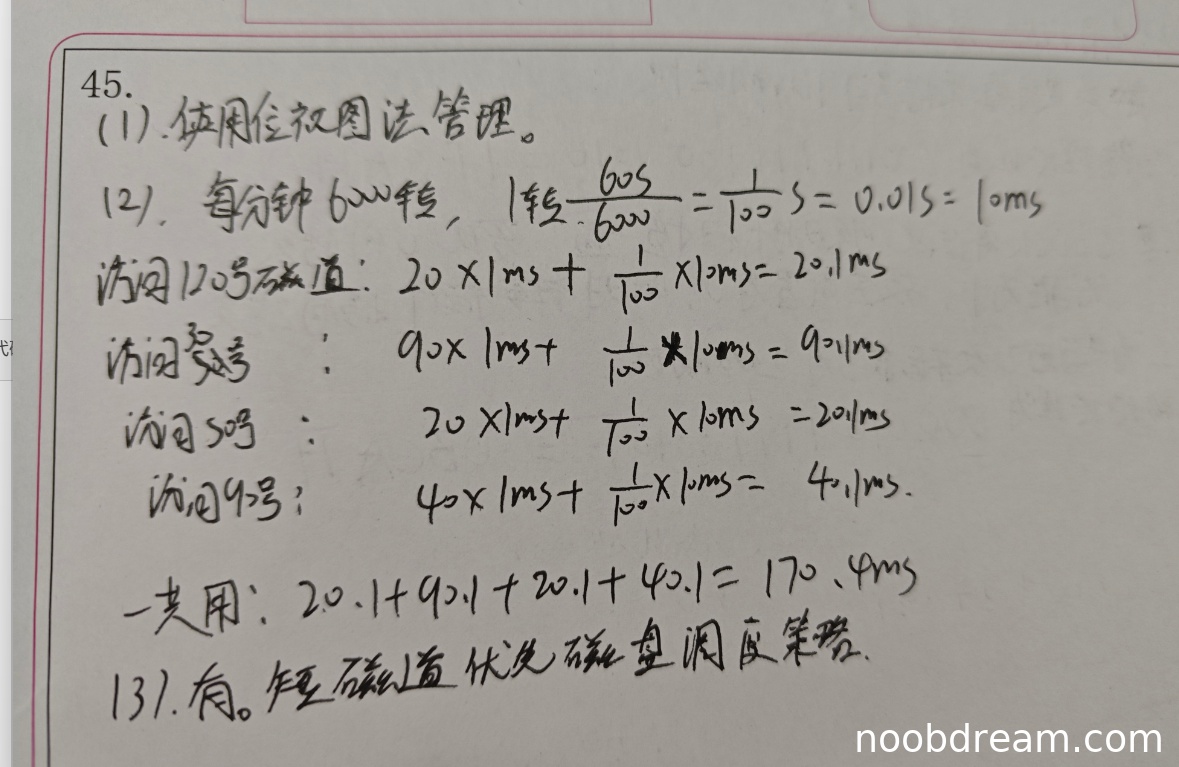 45.
(1). 使用位视图法管理。
(2). 每分钟6000转, 1转 60s/6000 = 1/100 s = 0.01s = 10ms
访问120号磁道: 20×1ms + 1/100 ×10ms = 20.1ms
访问30号 : 90×1ms + 1/100 ×10ms = 90.1ms
访问50号 : 20×1ms + 1/100 × 10ms = 20.1ms
访问90号: 40×1ms + 1/100 ×10ms = 40.1ms.
一共用: 20.1+90.1+20.1+40.1= 170.4ms
(3). 有。短磁道优先磁盘调度策略.
noobdream.com